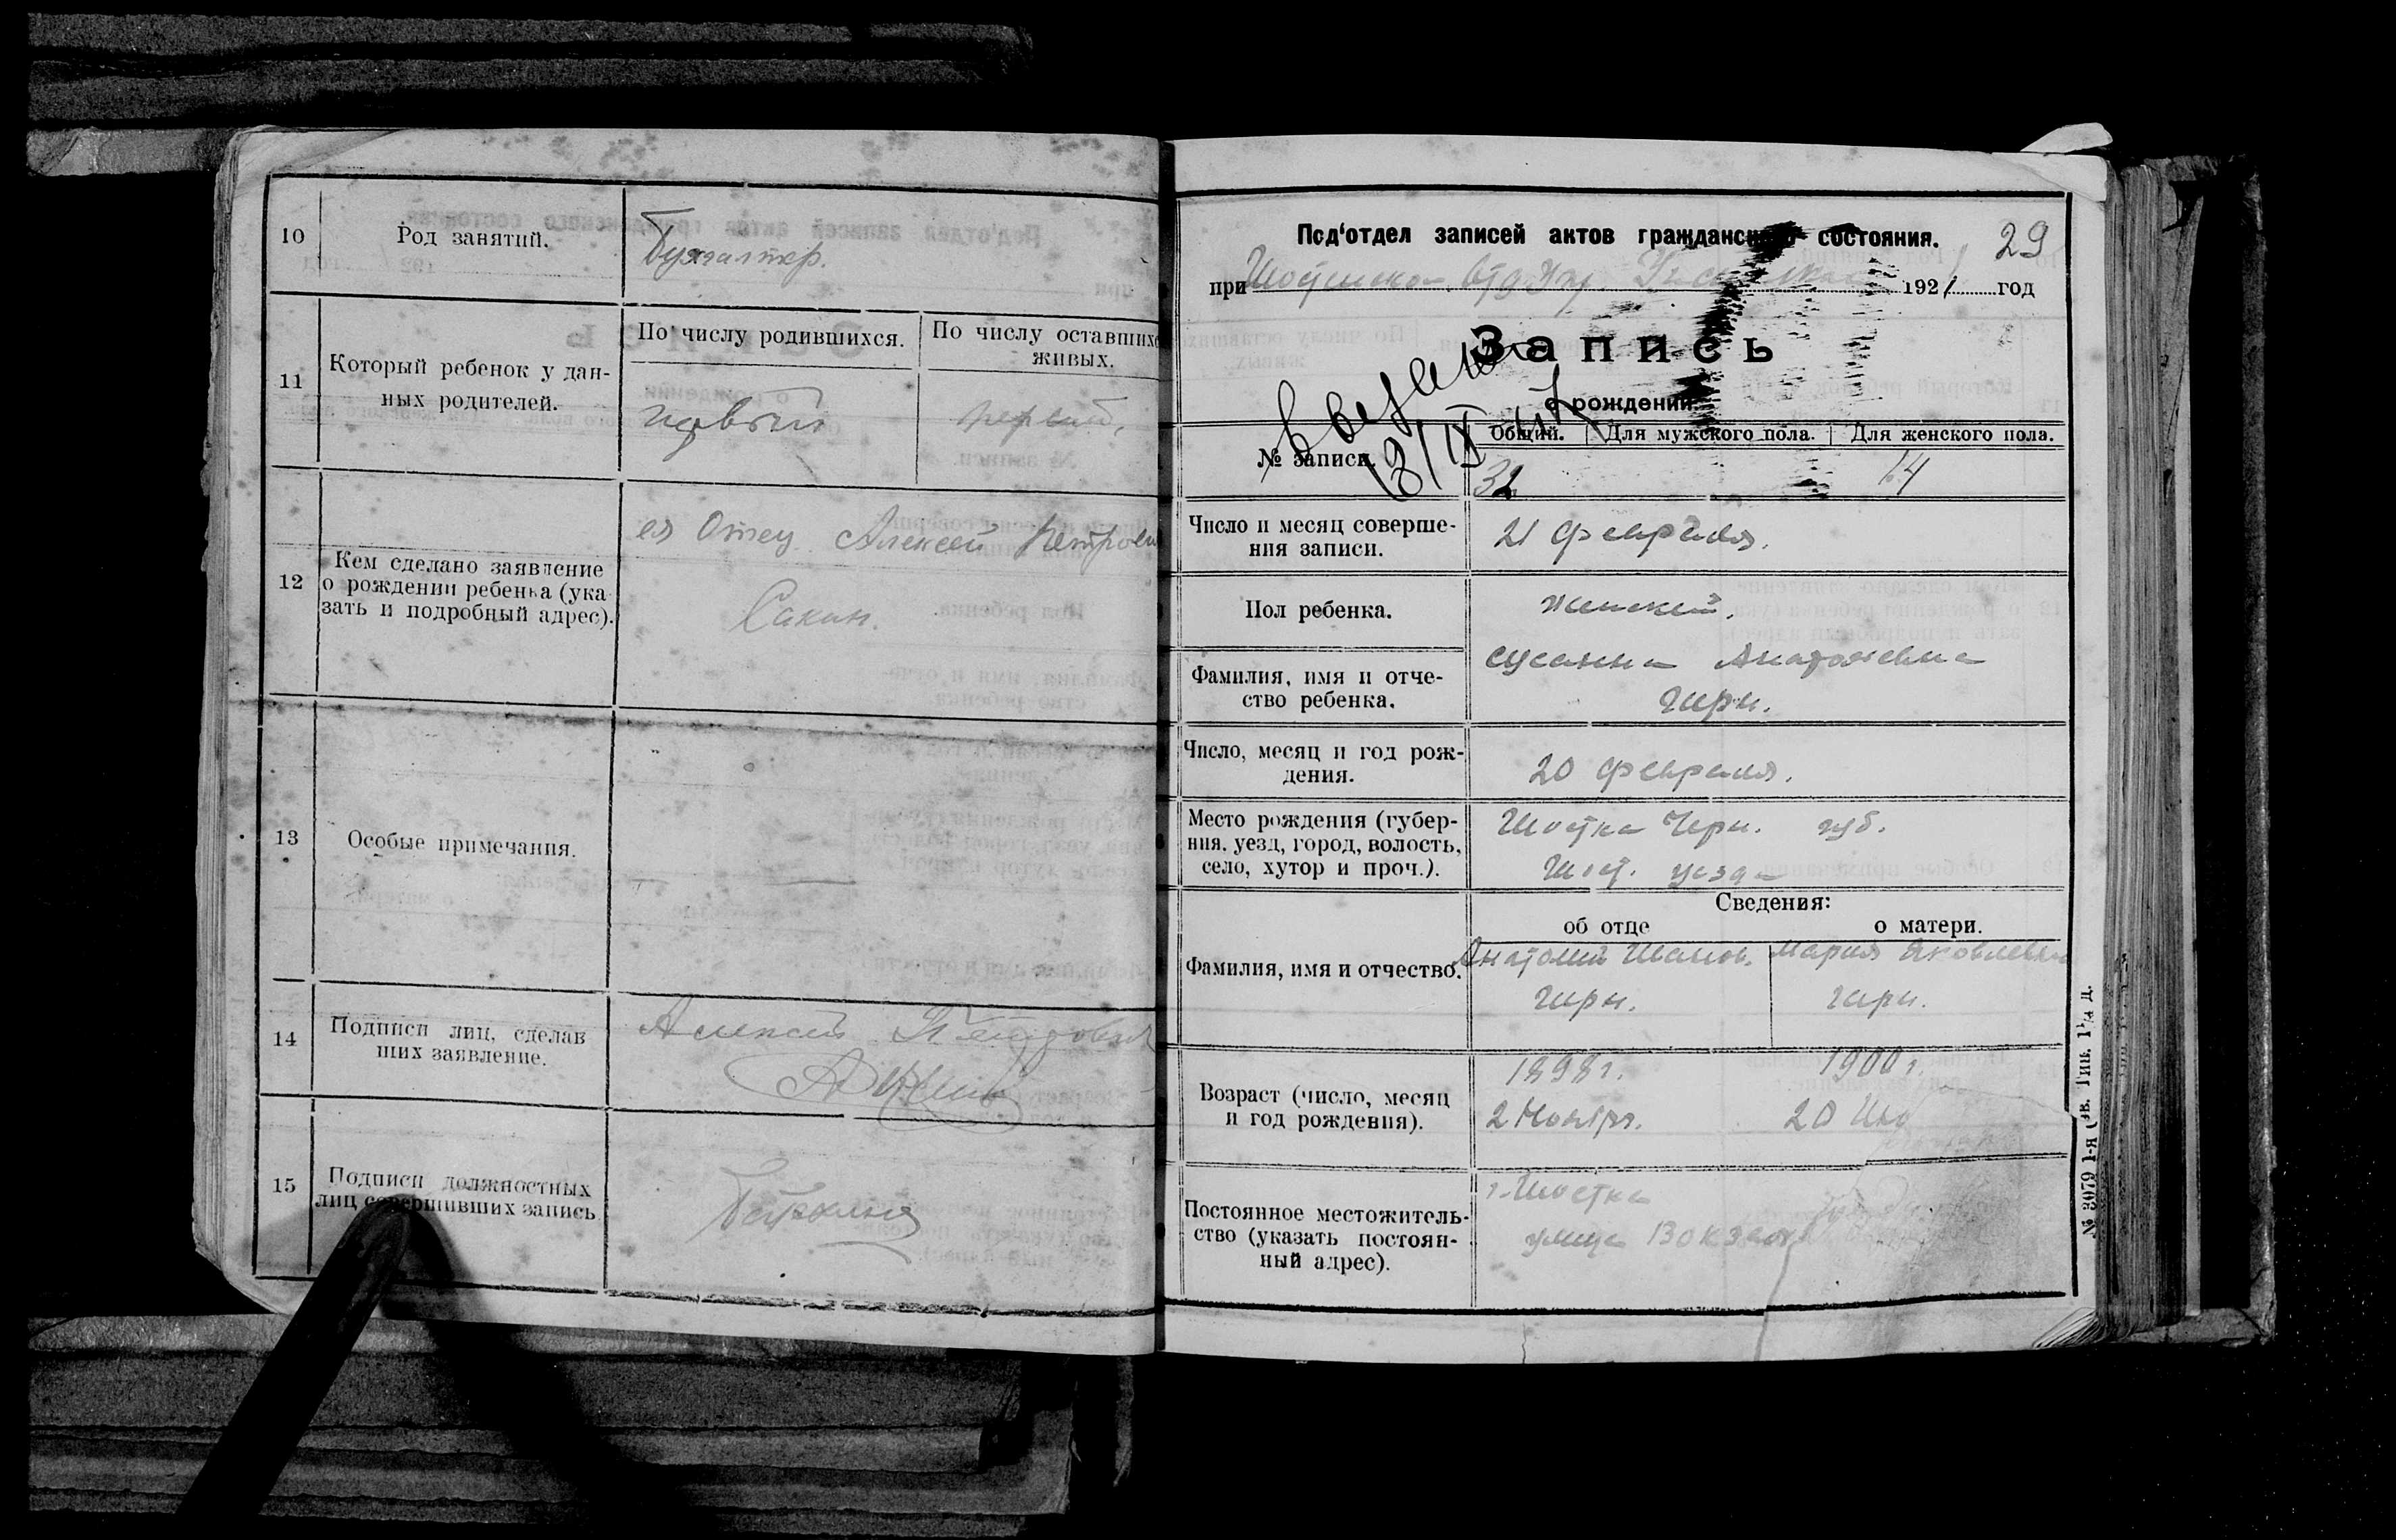 10
Род занятий.
Бухгалтер.
11
Который ребенок у дан-
ных родителей.
По числу родившихся.
По числу оставшихс
живых.
первый
первый,
12
Кем сделано заявление
о рождении ребенка (ука
зать и подробный адрес).
ея Отец Алексей Петрови
13
Особые примечания.
14
Подписи лиц, сделав
ших заявление.
Алексей Петрович
15
Подписи должностных
лиц совершивших запись
29
Под'отдел записей актов гражданского состояния.
при
1921 год
Запись
о рождении.
13/IX
№ записи.
Общий.
Для мужского пола.
Для женского пола.
32
14
Число и месяц соверше-
ния записи.
21 февраля.
Пол ребенка.
женский.
Фамилия, имя и отче-
ство ребенка.
Сусанна Анатольевна
Гирн.
Число, месяц и год рож-
дения.
20 февраля.
Место рождения (губер-
ния, уезд, город, волость,
село, хутор и проч.).
Шостка Черн. губ.
Шост. уезда
Сведения:
об отце
о матери.
Фамилия, имя и отчество.
Анатолий Иванов.
Гирн.
Мария Яковлевна
Гирн.
Возраст (число, месяц
и год рождения).
1898 г.
2 Ноябр.
1900 г.
20
Постоянное местожитель-
ство (указать постоян-
ный адрес).
г. Шостка
улица Вокзал
№ 3079 1-я Гип. 1¼ д.